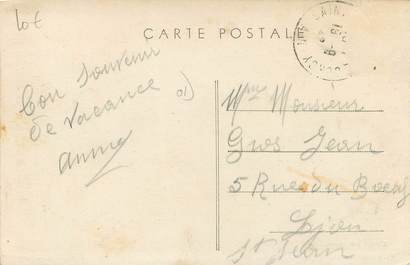 10€
CARTE POSTALE
Bon souvenir
de vacance
Annie
Mme Monsieur
Gros Jean
5 Rue du Boeuf
Lyon
St Jean